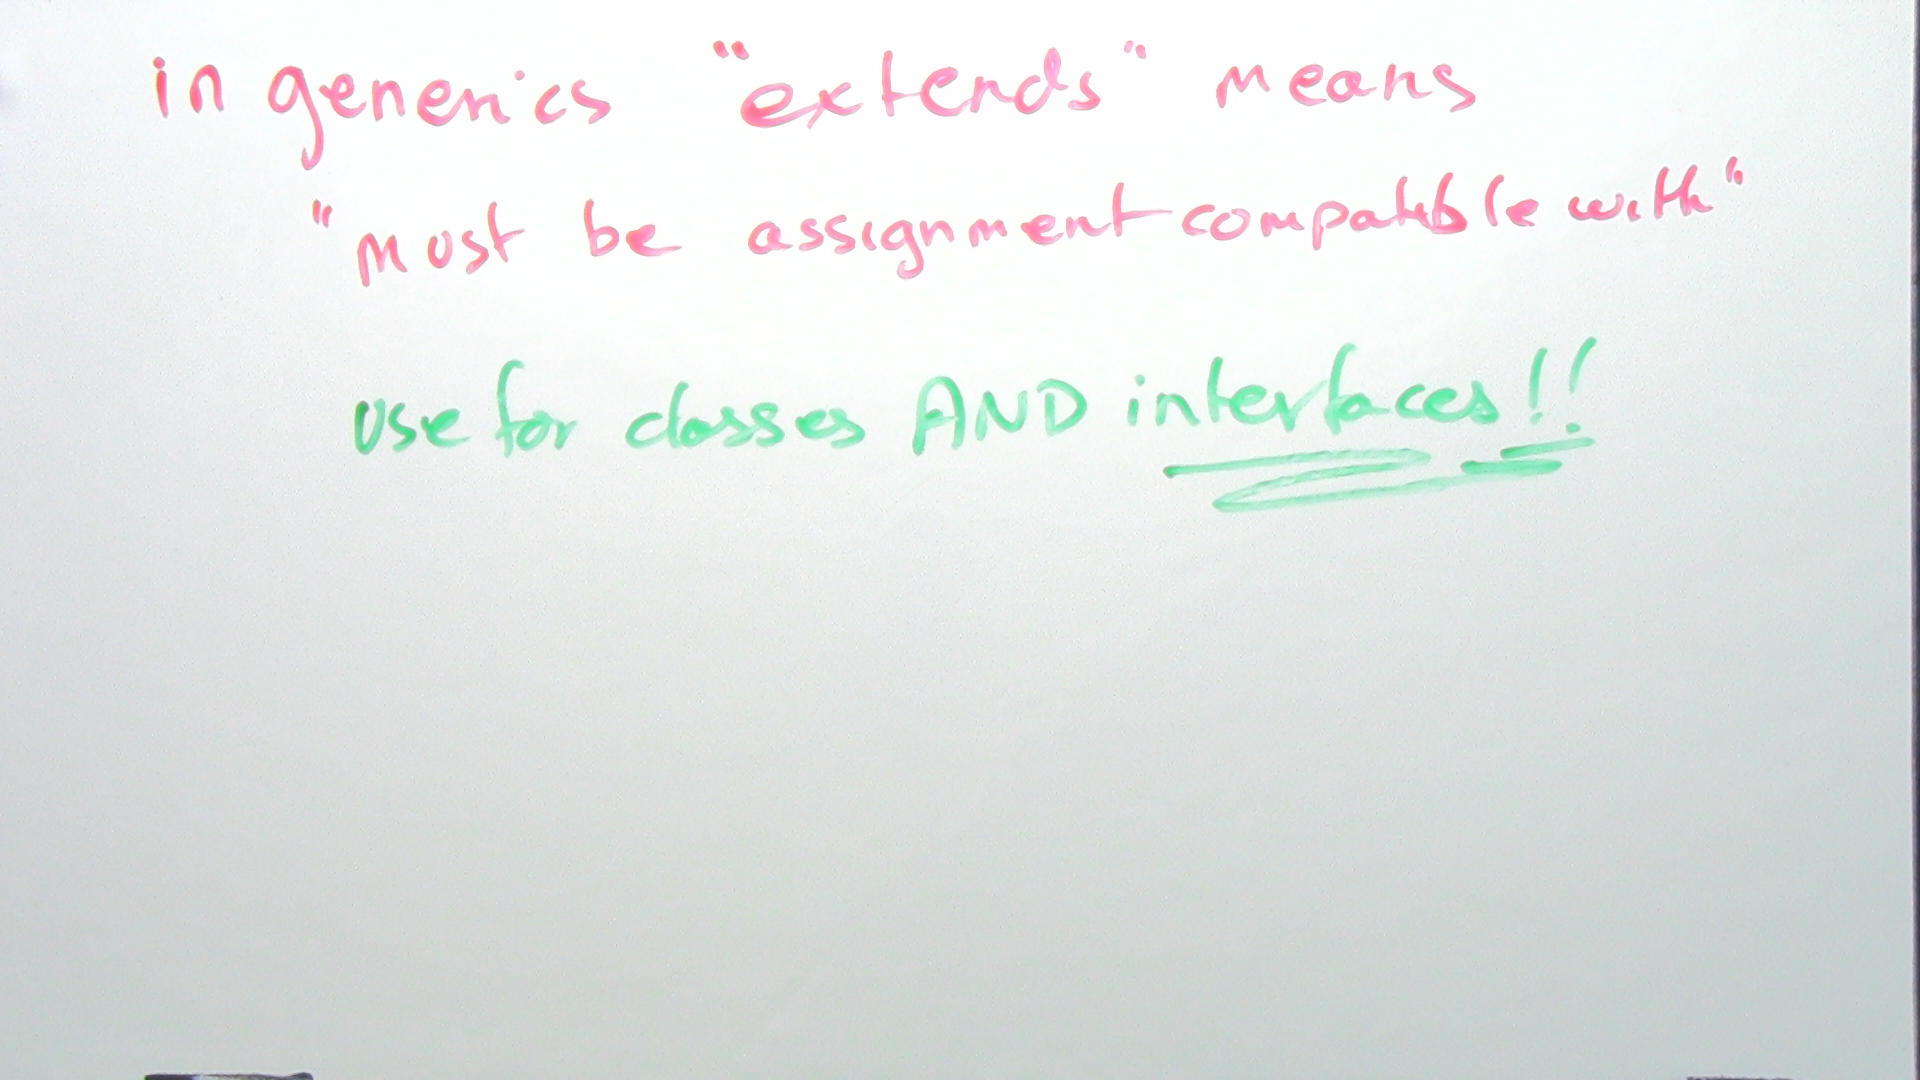 in generics "extends" means
"must be assignment compatible with"
use for classes AND interfaces!!